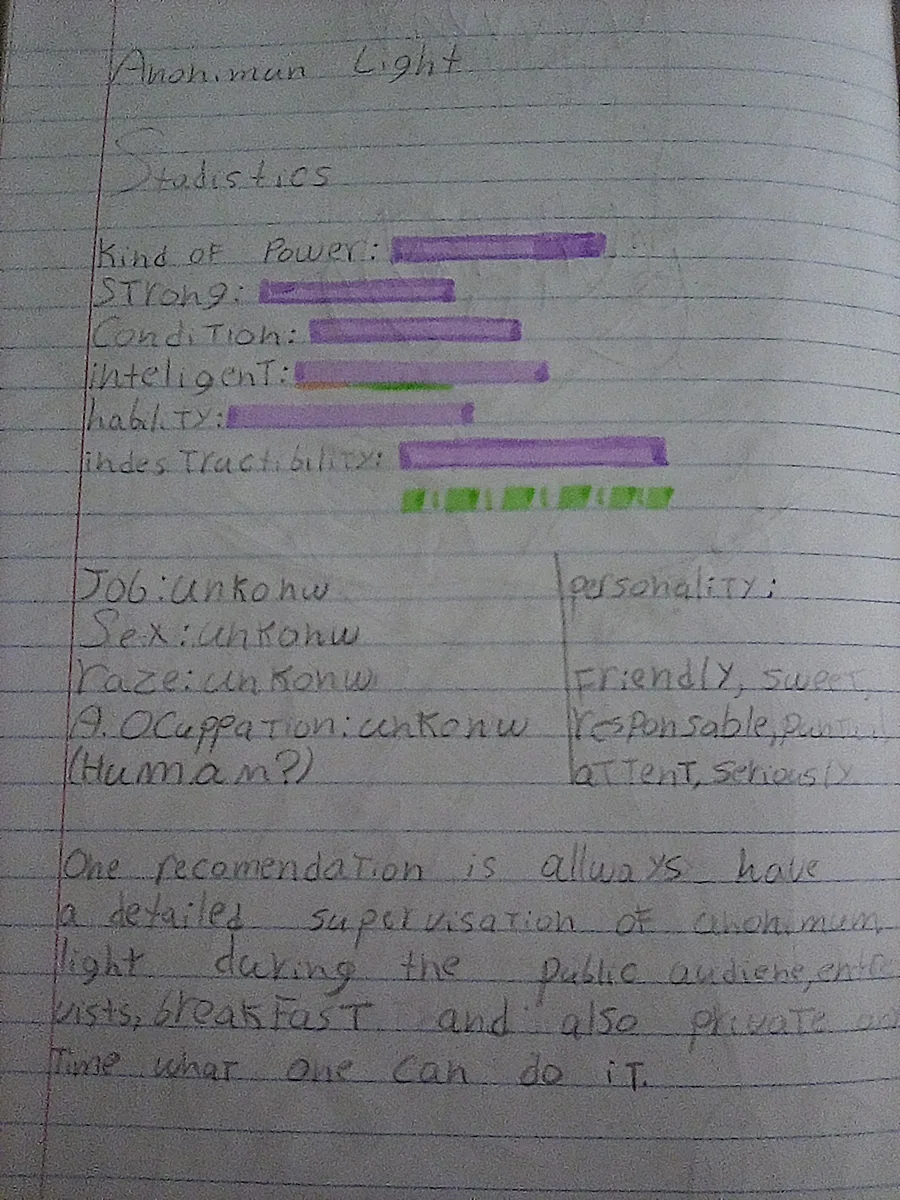 Anohimun Light
Stadistics
Kind of Power:
STrong:
CondiTion:
inteligenT:
habiliTy:
indesTractibiliTy:
Job: unkonw
Sex: unkonw
raze: unkonw
A. OCuppaTion: unkonw
(Human?)
personaliTy:
Friendly, sweet,
responsable,
aTTenT, seriously
One recomendaTion is allways have
a detailed supervisaTion of anohimum
light during the public audiene, entre
vists, breakFasT and also private
Time whaT one can do iT.